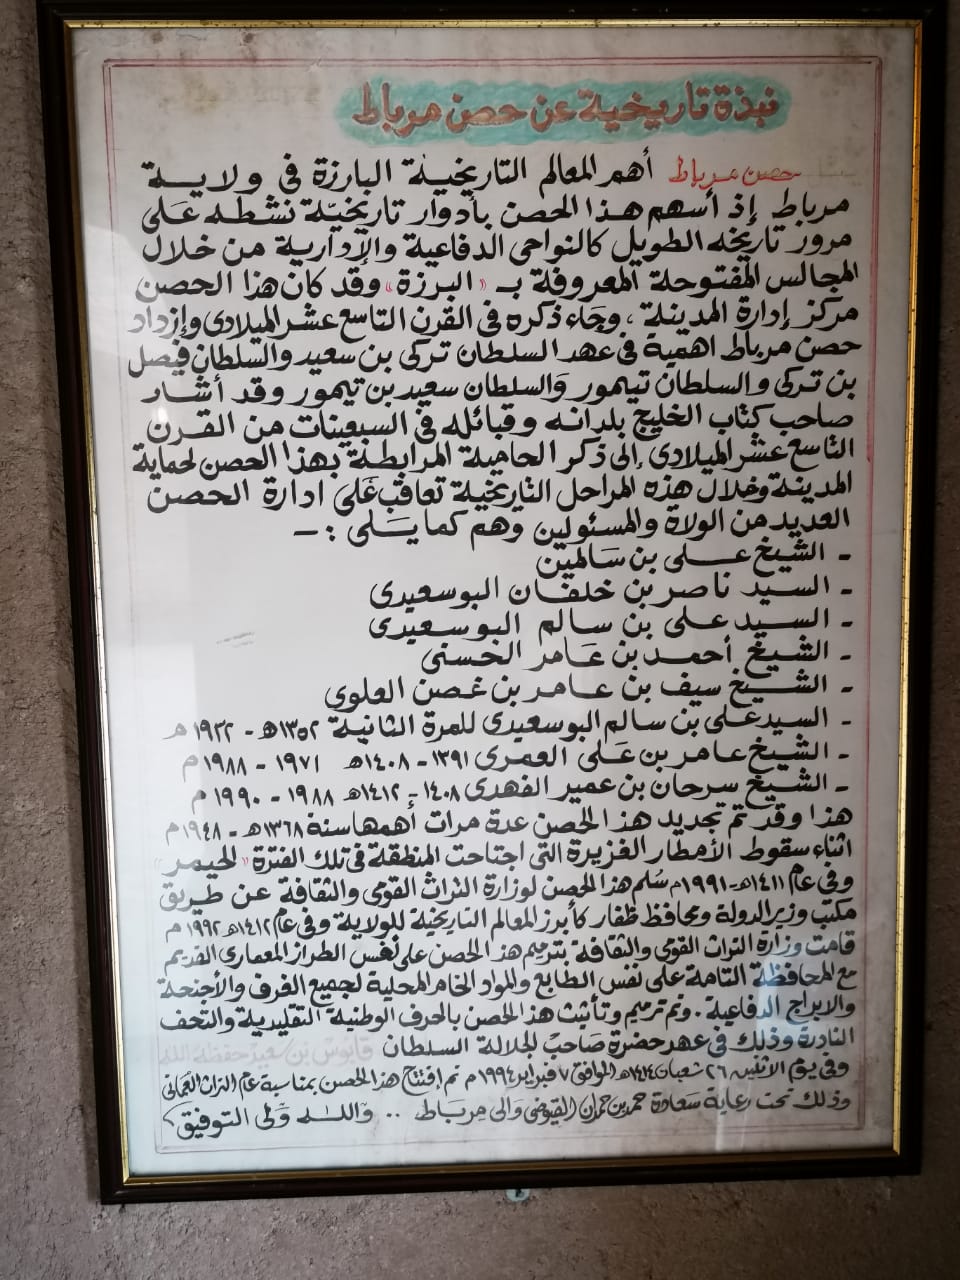 نبذة تاريخية عن حصن مرباط
حصن مرباط أهم المعالم التاريخية البارزة في ولاية
مرباط إذ أسهم هذا الحصن بأدوار تاريخية نشطه على
مرور تاريخه الطويل كالنواحي الدفاعية والإدارية من خلال
المجالس المفتوحة المعروفة بـ « البرزة » وقد كان هذا الحصن
مركز إدارة المدينة ، وجاء ذكره في القرن التاسع عشر الميلادى وإزداد
حصن مرباط اهمية في عهد السلطان تركى بن سعيد والسلطان فيصل
بن تركى والسلطان تيمور والسلطان سعيد بن تيمور وقد أشار
صاحب كتاب الخليج بلدانه وقبائله في السبعينات من القرن
التاسع عشر الميلادى إلى ذكر الحامية المرابطة بهذا الحصن لحماية
المدينة وخلال هذه المراحل التاريخية تعاقب على ادارة الحصن
العديد من الولاة والمسئولين وهم كما يلى : -
- الشيخ على بن سالمين
- السيد ناصر بن خلفان البوسعيدى
- السيد على بن سالم البوسعيدى
- الشيخ أحمد بن عامر الحسنى
- الشيخ سيف بن عامر بن غصن العلوي
- السيد على بن سالم البوسعيدى للمرة الثانية ١٣٥٢هـ - ١٩٢٢م
- الشيخ عامر بن على العمرى ١٣٩١ - ١٤٠٨هـ ١٩٧١ - ١٩٨٨م
- الشيخ سرحان بن عمير الفهدى ١٤٠٨ - ١٤١٢هـ ١٩٨٨ - ١٩٩٠م
هذا وقد تم تجديد هذا الحصن عدة مرات أهمها سنة ١٣٦٨هـ - ١٩٤٨م
اثناء سقوط الأمطار الغزيرة التى اجتاحت المنطقة في تلك الفترة « الحيمر »
وفى عام ١٤١١هـ - ١٩٩١م سُلم هذا الحصن لوزارة التراث القومى والثقافة عن طريق
مكتب وزير الدولة ومحافظ ظفار كأبرز المعالم التاريخية للولاية وفى عام ١٤١٢هـ ١٩٩٢م
قامت وزارة التراث القومى والثقافة بترميم هذا الحصن على نفس الطراز المعمارى القديم
مع المحافظة التامة على نفس الطابع والمواد الخام المحلية لجميع الغرف والأجنحة
والابراج الدفاعية . وتم ترميم وتأثيث هذا الحصن بالحرف الوطنية التقليدية والتحف
النادرة وذلك في عهد حضرة صاحب الجلالة السلطان قابوس بن سعيد حفظه الله
وفى يوم الاثنين ٢٦ شعبان ١٤١٤هـ الموافق ٧ فبراير ١٩٩٤م تم إفتتاح هذا الحصن بمناسبة عام التراث العمانى
وذلك تحت رعاية سعادة حمد بن حمدان القيوضى والى مرباط .. والله ولى التوفيق ،